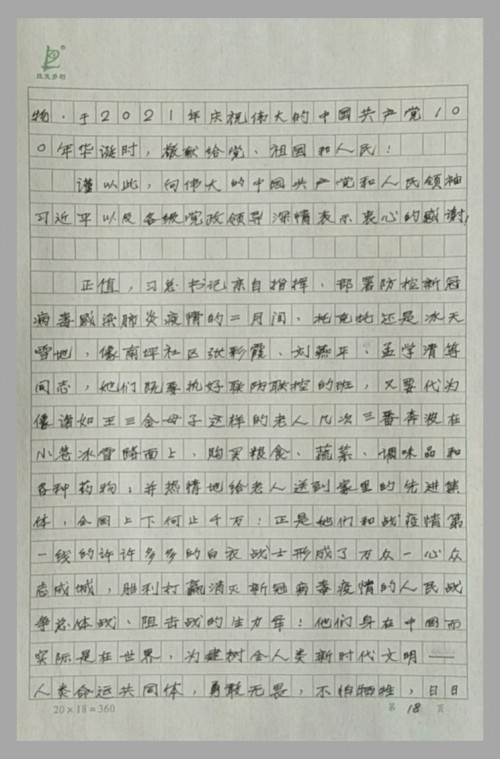 物.于2021年庆祝伟大的中国共产党10
0年华诞时,敬献给党、祖国和人民!
谨以此,向伟大的中国共产党和人民领袖
习近平以及各级党政领导深情表示衷心的感谢!
正值,习总书记亲自指挥、部署防控新冠
病毒感染肺炎疫情的二月间,托克托还是冰天
雪地,像南坪社区张彩霞、刘燕平、孟学清等
同志,她们既要执好联防联控的班,又要代为
像诸如王三全母子这样的老人几次三番奔波在
小巷冰雪路面上,购买粮食、蔬菜、调味品和
各种药物,并热情地给老人送到家里的先进集
体,全国上下何止千万:正是她们和战疫情第
一线的许许多多的白衣战士形成了万众一心众
志成城,胜利打赢消灭新冠病毒疫情的人民战
争总体战、阻击战的生力军!他们身在中国而
实际是在世界,为建树全人类新时代文明——
人类命运共同体,勇敢无畏,不怕牺牲,日日
20×18=360 第 18 页